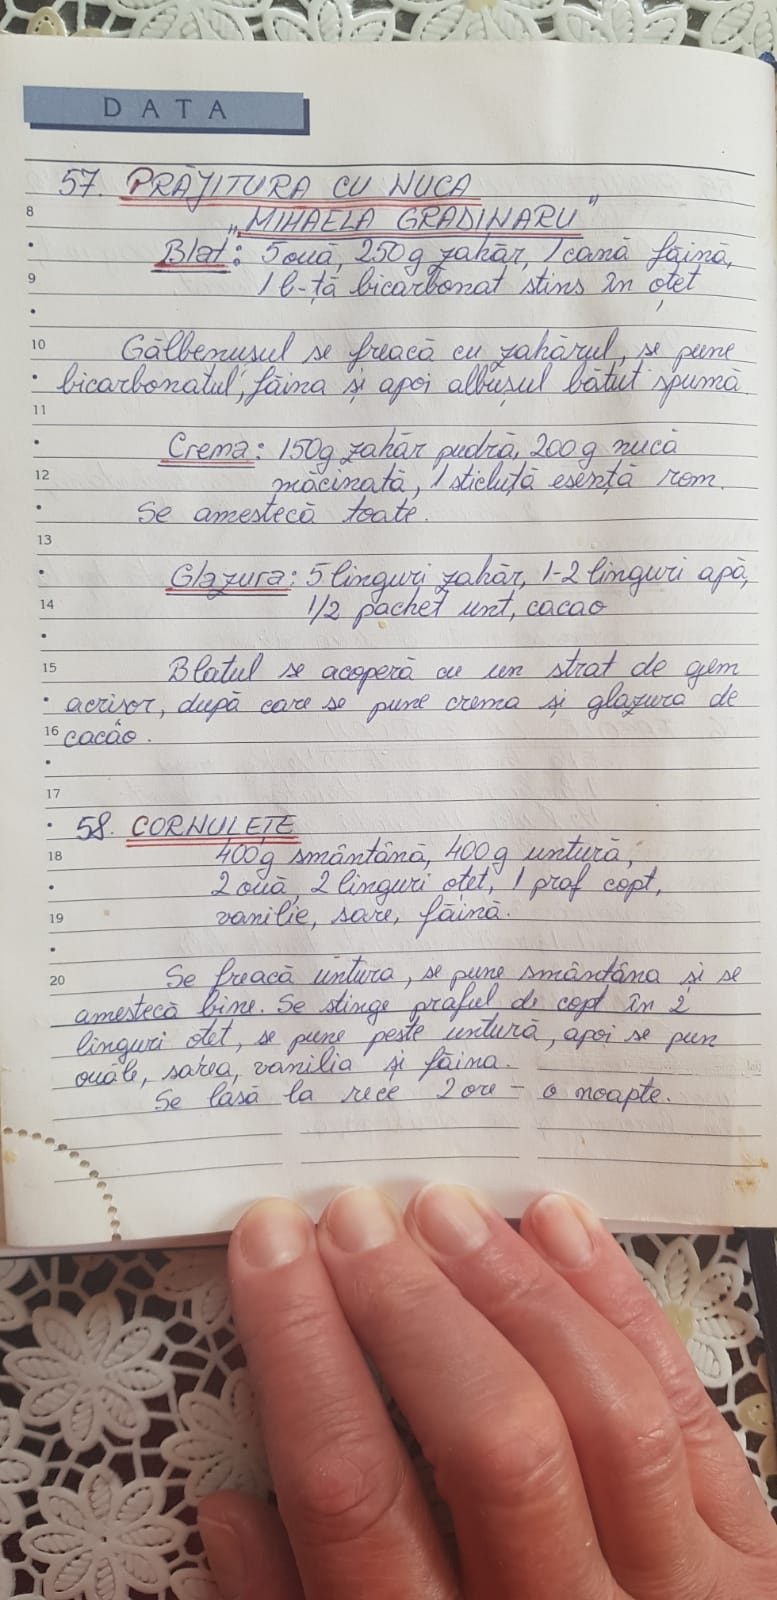 DATA
57. PRĂJITURA CU NUCA
"MIHAELA GRADINARU"
8
Blat: 5 ouă, 250g zahăr, 1 cană făină,
9
1 l-ță bicarbonat stins în oțet
10
Gălbenusul se freacă cu zahărul, se pune
bicarbonatul, făina și apoi albușul bătut spumă.
11
Crema: 150g zahăr pudră, 200g nucă
12
măcinată, 1 sticluță esență rom.
Se amestecă toate.
13
Glazura: 5 linguri zahăr, 1-2 linguri apă,
14
1/2 pachet unt, cacao
15
Blatul se acoperă cu un strat de gem
acrișor, după care se pune crema și glazura de
16
cacao.
17
58. CORNULEȚE
18
400g smântână, 400g untură,
2 ouă, 2 linguri oțet, 1 praf copt,
19
vanilie, sare, făină.
20
Se freacă untura, se pune smântâna și se
amestecă bine. Se stinge praful de copt în 2
linguri oțet, se pune peste untură, apoi se pun
ouăle, sarea, vanilia și făina.
Se lasă la rece 2 ore - o noapte.